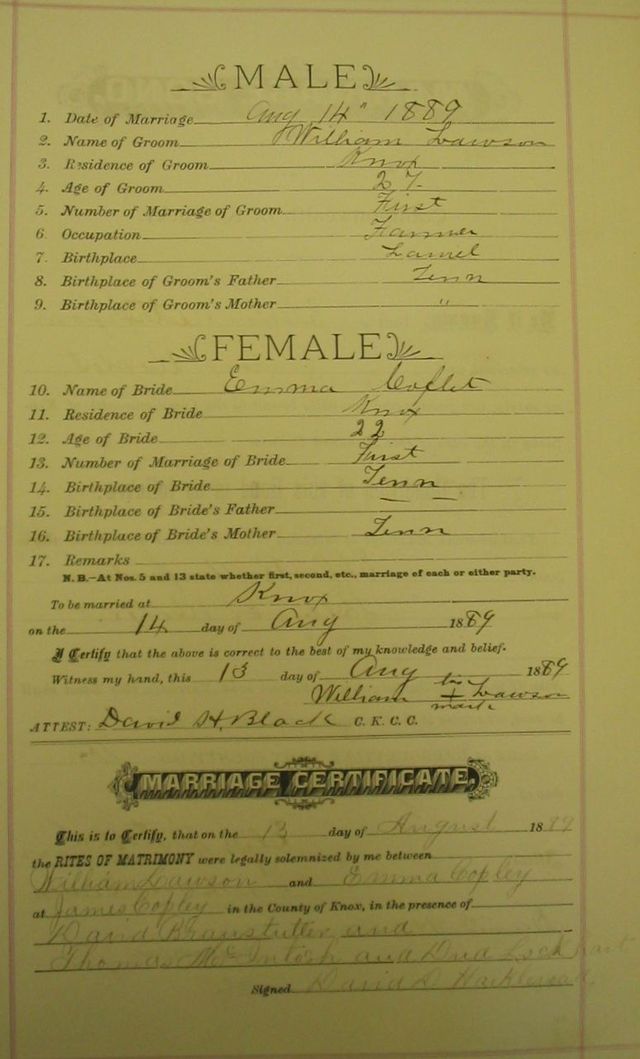 MALE
1. Date of Marriage Aug 14" 1889
2. Name of Groom William Lawson
3. Residence of Groom Knox
4. Age of Groom 27
5. Number of Marriage of Groom First
6 Occupation Farmer
7. Birthplace Laurel
8. Birthplace of Groom's Father Tenn
9. Birthplace of Groom's Mother "
FEMALE
10. Name of Bride Emma
11. Residence of Bride Knox
12. Age of Bride 22
13. Number of Marriage of Bride First
14. Birthplace of Bride Tenn
15. Birthplace of Bride's Father — —
16. Birthplace of Bride's Mother Tenn
17. Remarks
N.B.—At Nos. 5 and 13 state whether first, second, etc., marriage of each or either party.
To be married at Knox
on the 14 day of Aug 1889
I Certify that the above is correct to the best of my knowledge and belief.
Witness my hand, this 13 day of Aug 1889
William his + mark Lawson
ATTEST: David H. Black C. K. C. C.
MARRIAGE CERTIFICATE.
This is to Certify, that on the 13 day of August 1889
the RITES OF MATRIMONY were legally solemnized by me between
William Lawson and Emma Copley
at James Copley in the County of Knox, in the presence of
and
Thomas McIntosh and Lockhart
Signed David D.